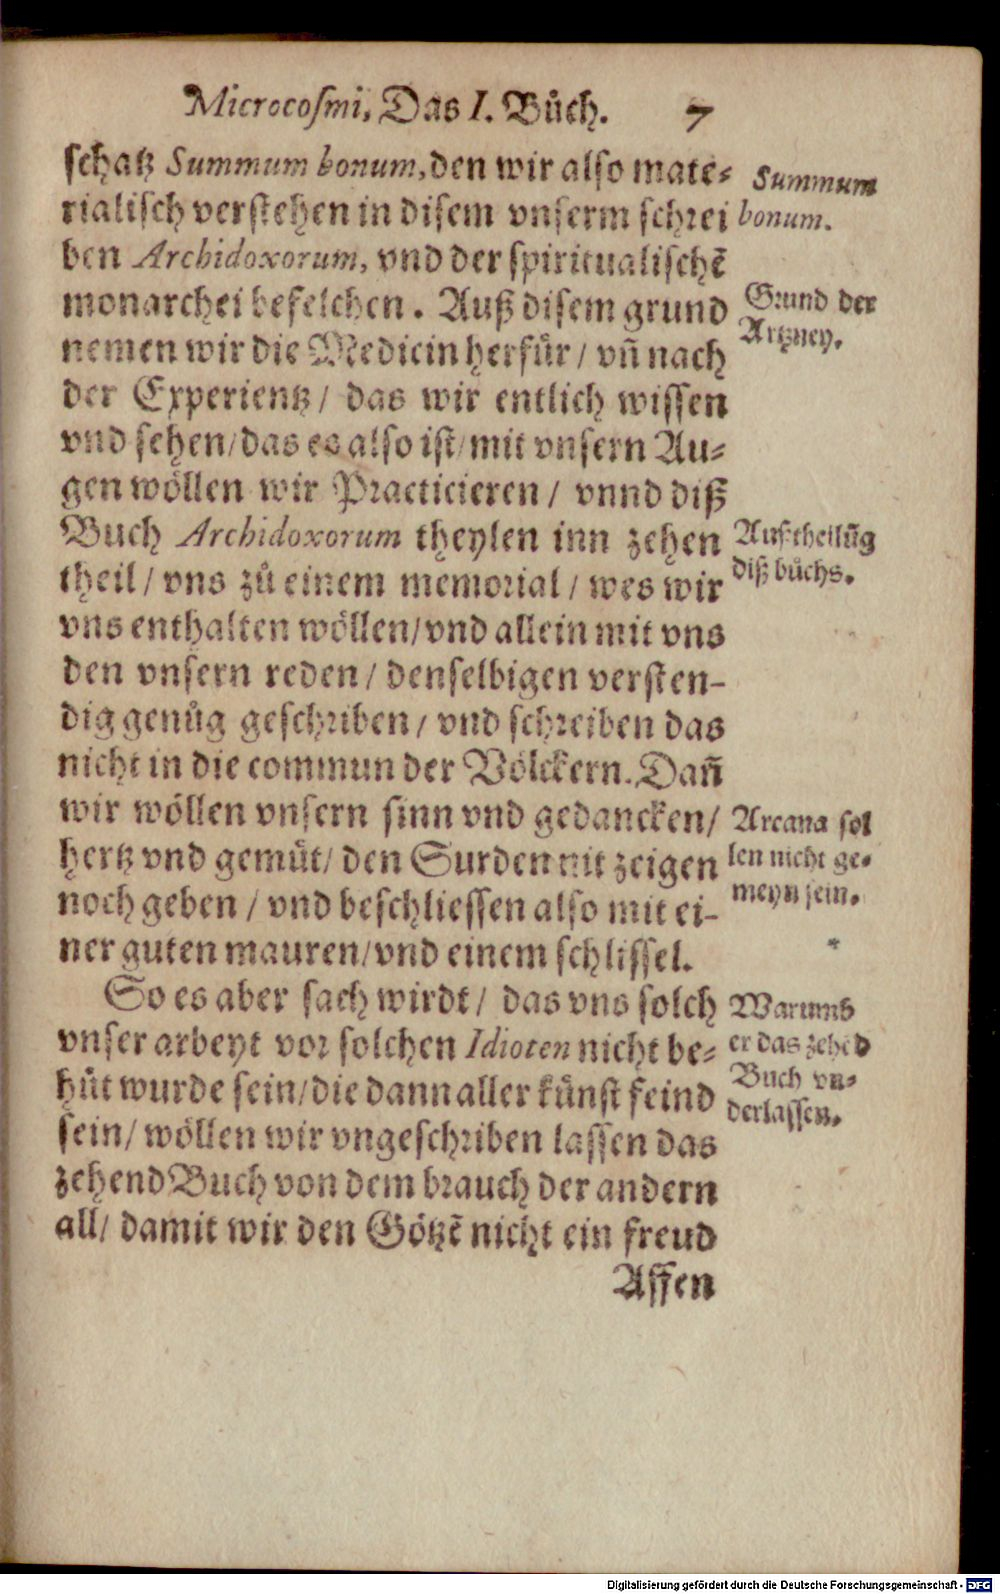 Microcosmi, Das I. Bůch. 7
schatz Summum bonum, den wir also mate-
rialisch verstehen in disem vnserm schrei
ben Archidoxorum, vnd der spiritualischē
monarchei befelchen. Auß disem grund
nemen wir die Medicin herfür / vñ nach
der Experientz / das wir entlich wissen
vnd sehen / das es also ist / mit vnsern Au-
gen wöllen wir Practicieren / vnnd diß
Buch Archidoxorum theylen inn zehen
theil / vns zů einem memorial / wes wir
vns enthalten wöllen / vnd allein mit vns
den vnsern reden / denselbigen versten-
dig genůg geschriben / vnd schreiben das
nicht in die commun der Völckern. Dañ
wir wöllen vnsern sinn vnd gedancken /
hertz vnd gemüt / den Surden nit zeigen
noch geben / vnd beschliessen also mit ei-
ner guten mauren / vnd einem schlissel.
So es aber sach wirdt / das vns solch
vnser arbeyt vor solchen Idioten nicht be-
hüt wurde sein / die dann aller künst feind
sein / wöllen wir vngeschriben lassen das
zehend Buch von dem brauch der andern
all / damit wir den Götzē nicht ein freud
Affen
Summum
bonum.
Grund der
Artzney.
Außtheilūg
diß bůchs.
Arcana sol
len nicht ge-
meyn sein.
*
Warumb
er das zehēd
Buch vn-
derlassen.
Digitalisierung gefördert durch die Deutsche Forschungsgemeinschaft - DFG